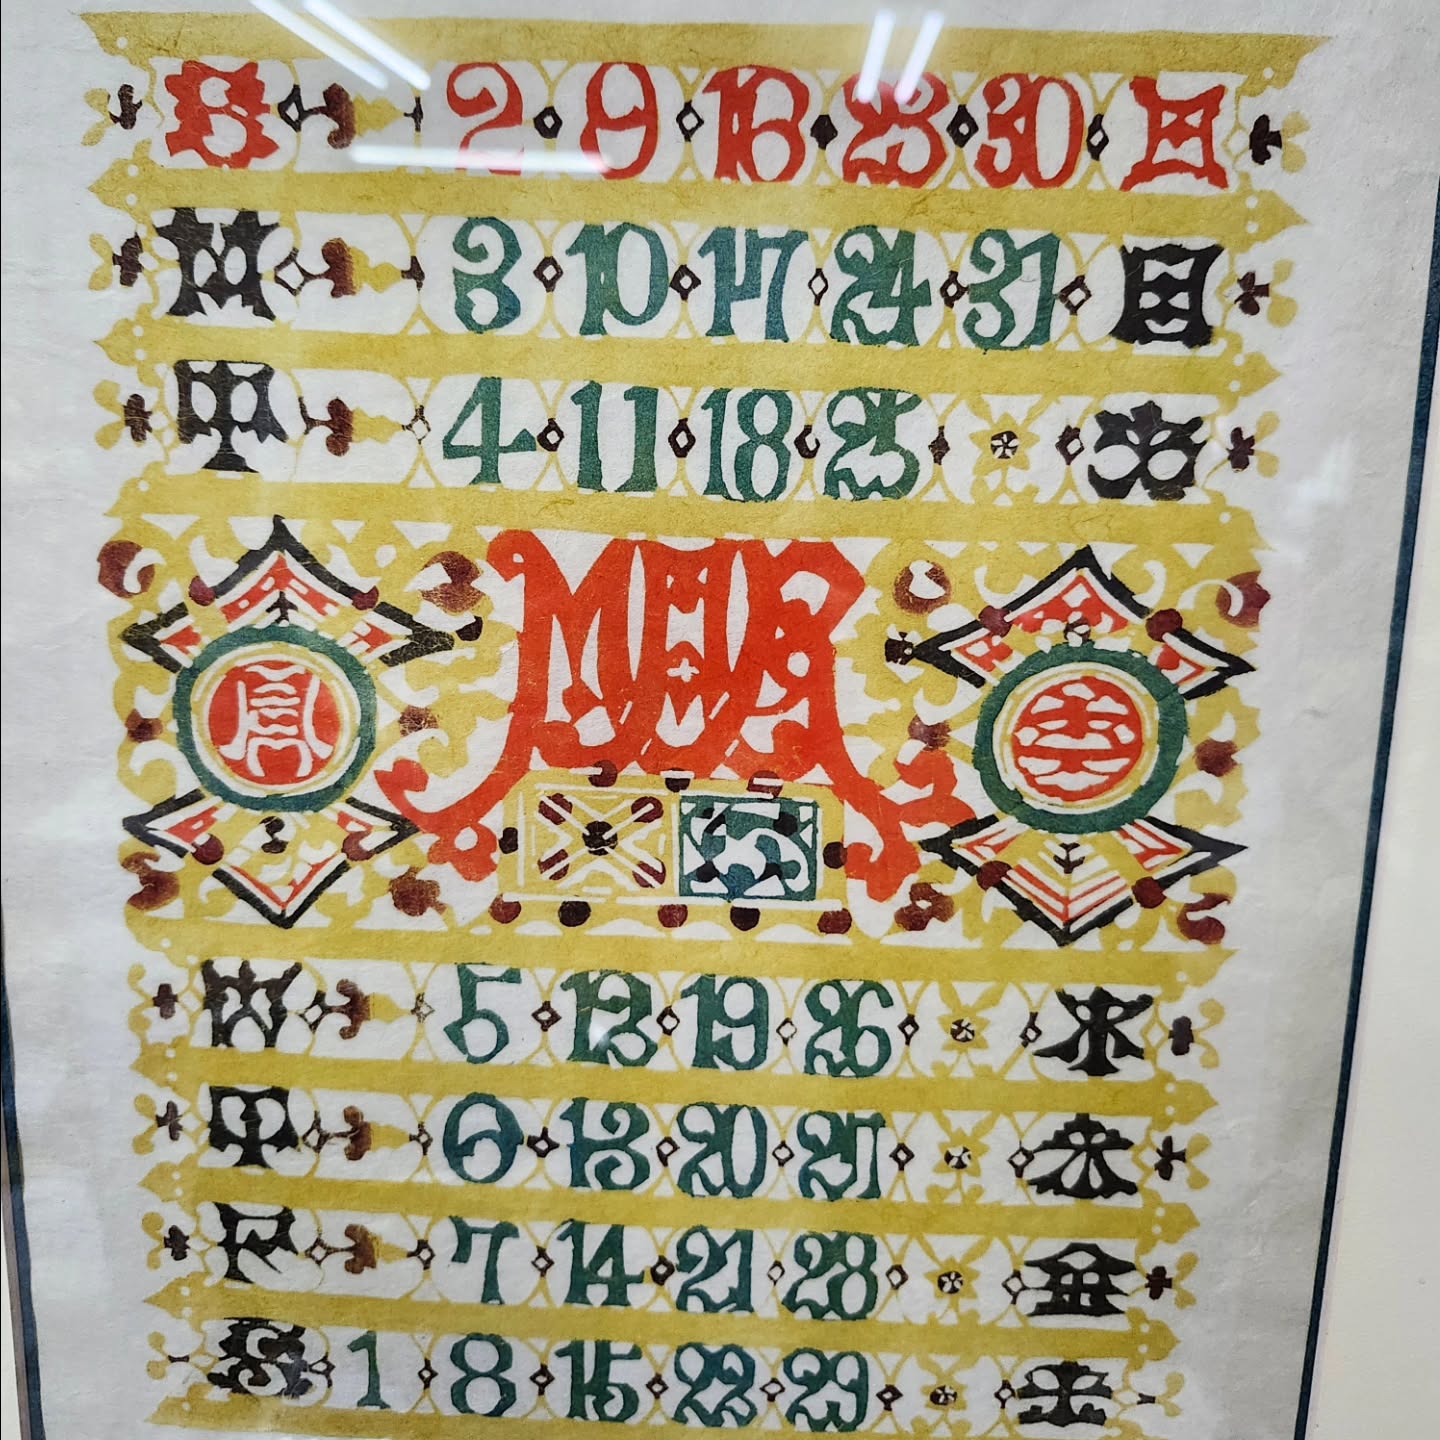 S 2 9 16 23 30 日
M 3 10 17 24 31 月
T 4 11 18 25 火
MAR
W 5 12 19 26 水
T 6 13 20 27 木
F 7 14 21 28 金
S 1 8 15 22 29 土